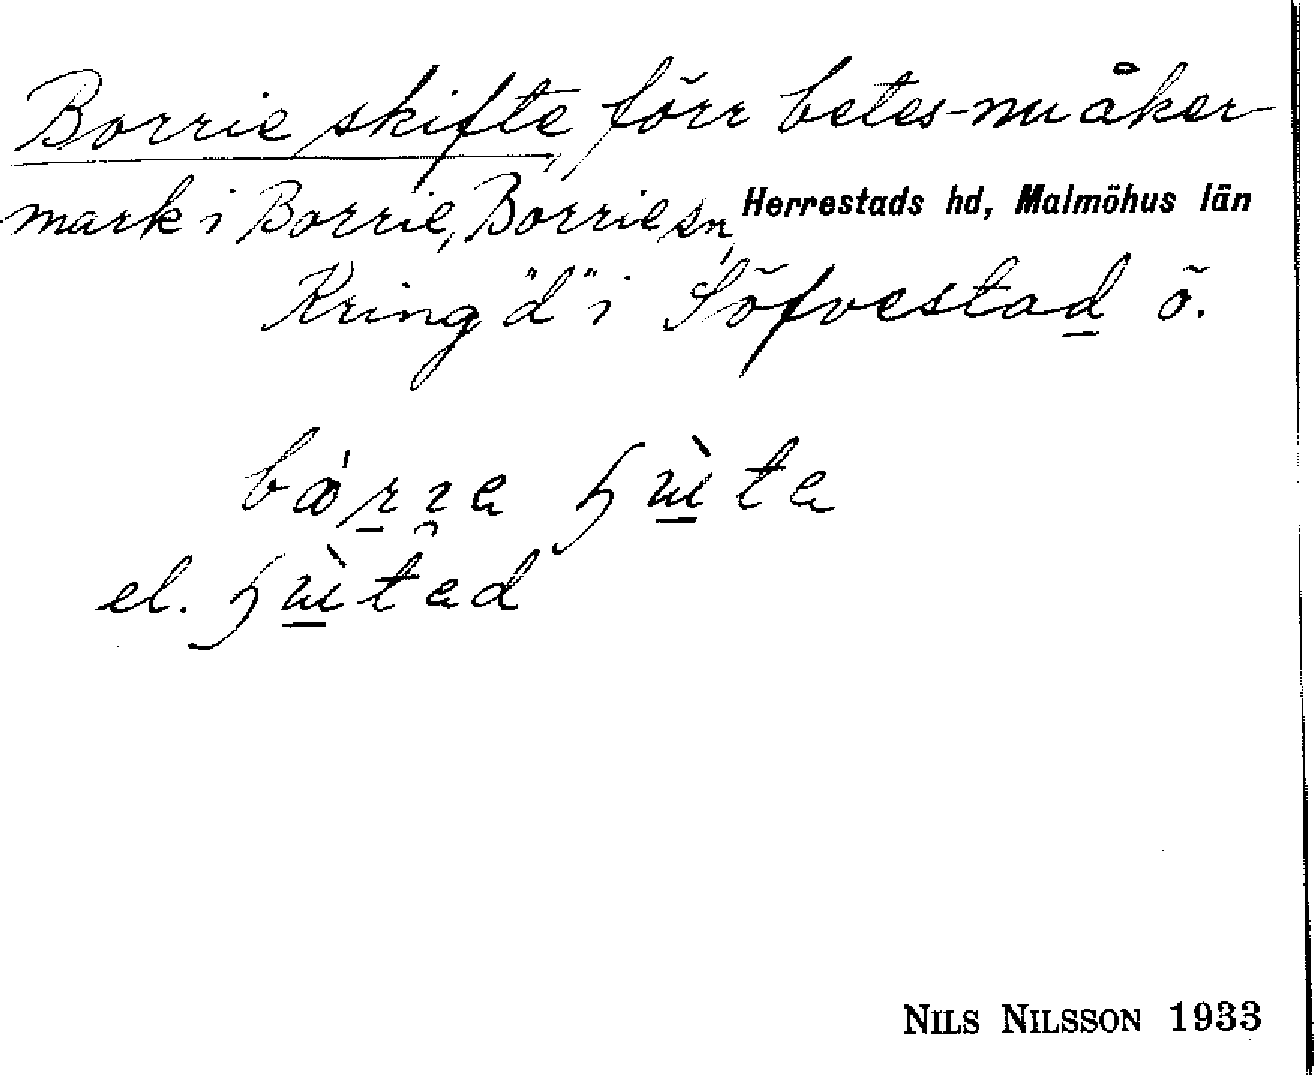 Borrie skifte, förr betes- nu åker-
mark i Borrie, Borrie sn, Herrestads hd, Malmöhus län
Kring "d" i Söfvestad ö.
el.
NILS NILSSON 1933